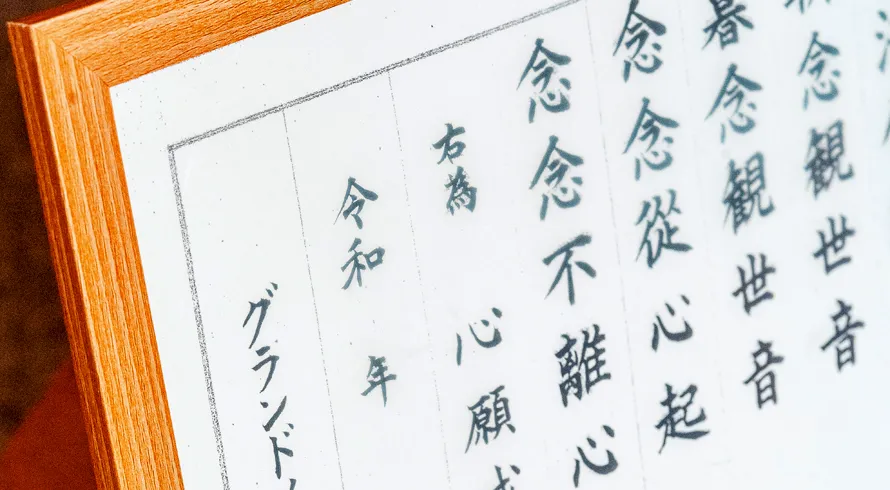 念観世音
暮念観世音
念念從心起
念念不離心
右為 心願
令和 年
グランド